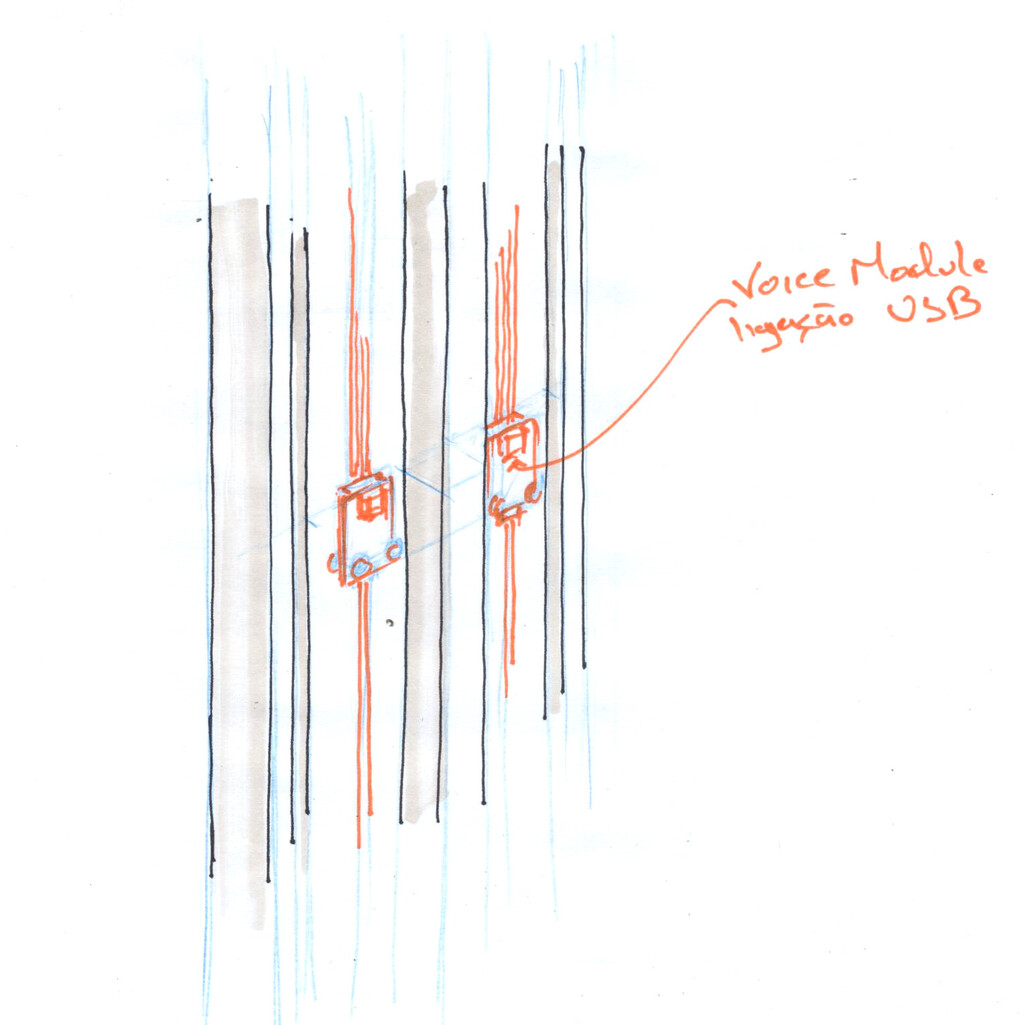 Voice Module
ligação USB